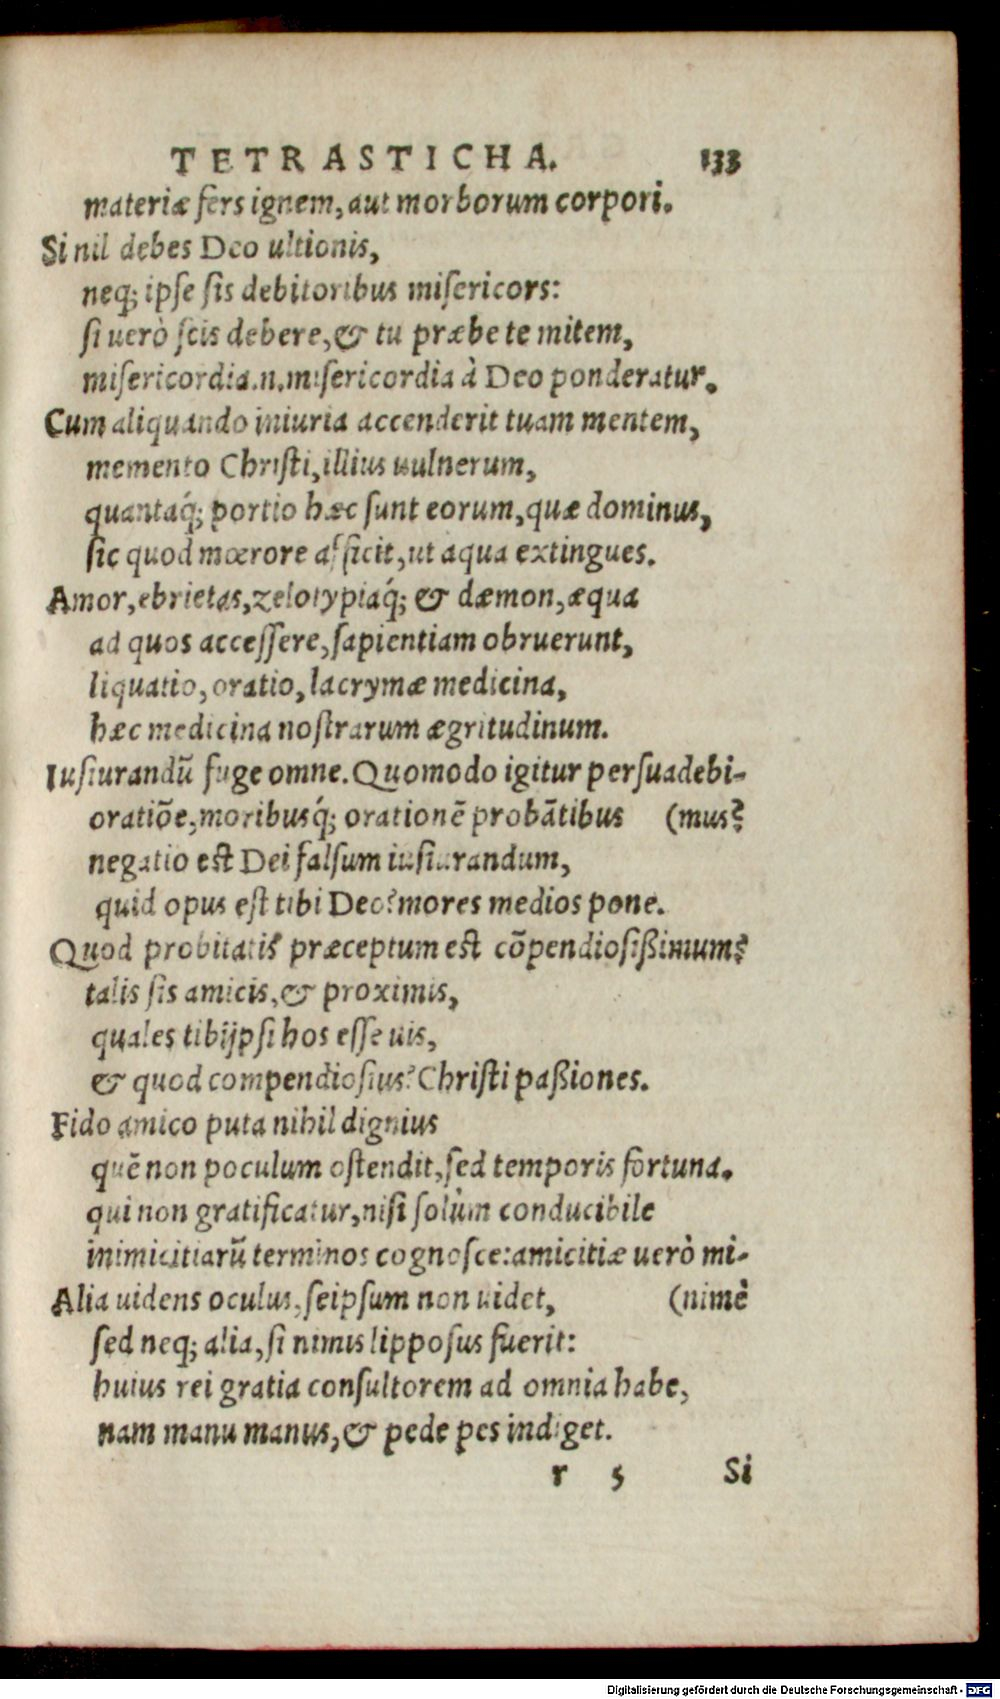 TETRASTICHA. 133
materiæ fers ignem, aut morborum corpori.
Si nil debes Deo ultionis,
neq; ipse sis debitoribus misericors:
si uerò scis debere, & tu præbe te mitem,
misericordia.n.misericordia à Deo ponderatur.
Cum aliquando iniuria accenderit tuam mentem,
memento Christi, illius uulnerum,
quantaq́; portio hæc sunt eorum, quæ dominus,
sic quod mœrore afficit, ut aqua extingues.
Amor, ebrietas, zelotypiaq́; & dæmon, æqua
ad quos accessere, sapientiam obruerunt,
liquatio, oratio, lacrymæ medicina,
hæc medicina nostrarum ægritudinum.
Iusiurandũ fuge omne. Quomodo igitur persuadebi-
oratiõe, moribusq́; orationẽ probãtibus (mus?
negatio est Dei falsum iusiurandum,
quid opus est tibi Deo? mores medios pone.
Quod probitatis præceptum est cõpendiosißimum?
talis sis amicis, & proximis,
quales tibijpsi hos esse uis,
& quod compendiosius? Christi paßiones.
Fido amico puta nihil dignius
quẽ non poculum ostendit, sed temporis fortuna.
qui non gratificatur, nisi solùm conducibile
inimicitiarũ terminos cognosce: amicitiæ uerò mi-
Alia uidens oculus, seipsum non uidet, (nimè
sed neq; alia, si nimis lipposus fuerit:
huius rei gratia consultorem ad omnia habe,
nam manu manus, & pede pes indiget.
r 5 Si
Digitalisierung gefördert durch die Deutsche Forschungsgemeinschaft - DFG